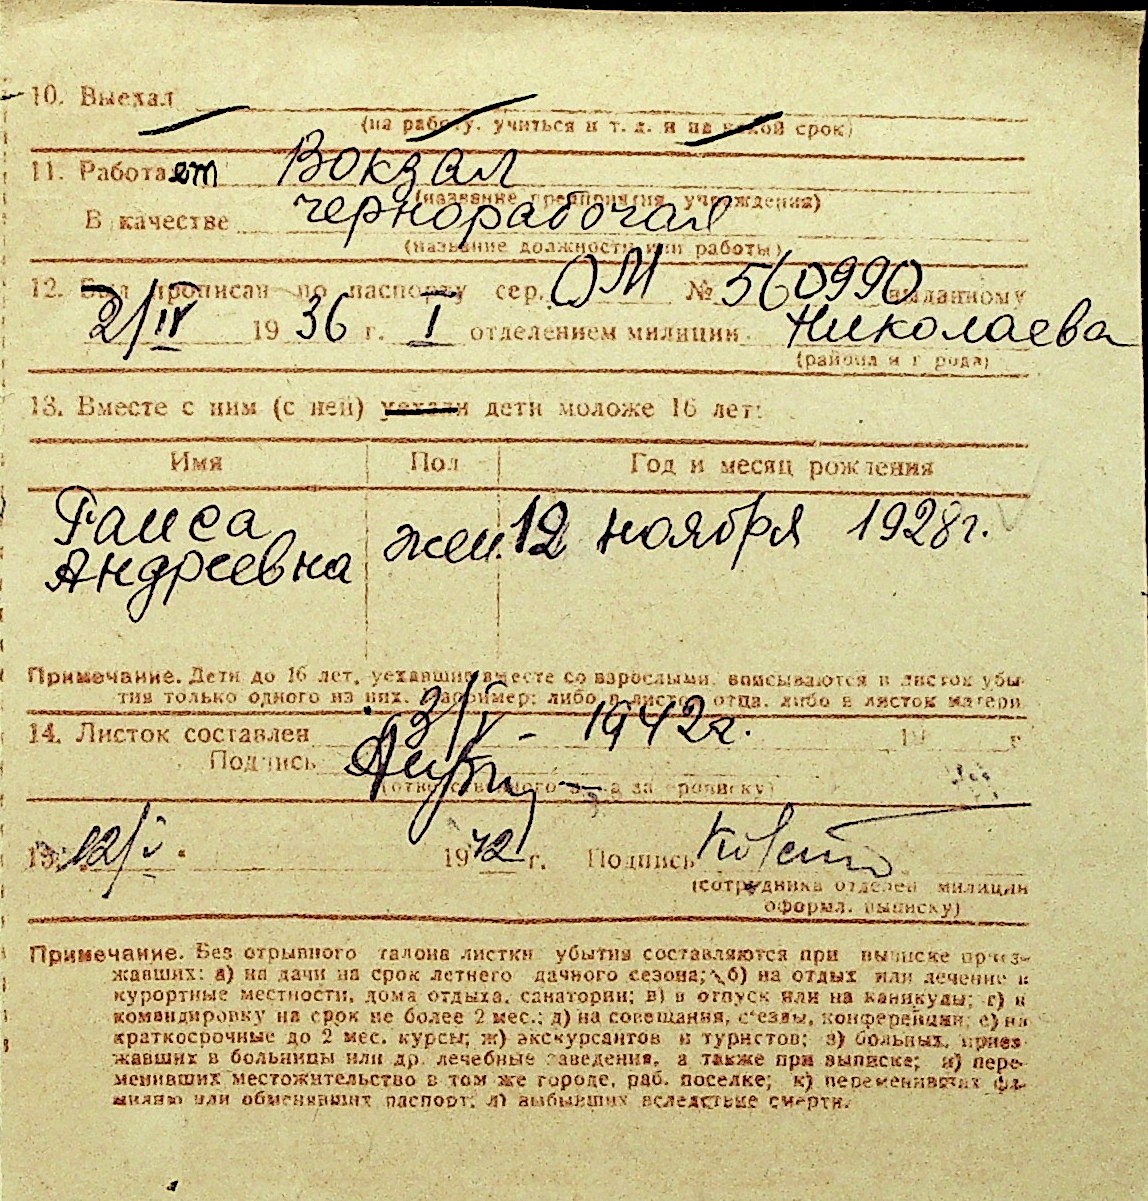 10. Выехал
(на работу, учиться и т. д. и на какой срок)
11. Работает Вокзал
(название предприятия, учреждения)
В качестве чернорабочая
(название должности или работы)
12. Был прописан по паспорту сер. ОМ № 560990 выданному
2/IV 1936 г. I отделением милиции Николаева
(района и города)
13. Вместе с ним (с ней) уехали дети моложе 16 лет:
Имя Пол Год и месяц рождения
Раиса Андреевна жен. 12 ноября 1928г.
Примечание. Дети до 16 лет, уехавшие вместе со взрослыми, вписываются в листок убы-
тия только одного из них, например: либо в листок отца, либо в листок матери
14. Листок составлен 3/V - 1942г. 19 г.
Подпись
(ответственного лица за прописку)
15. 12/V 1942 г. Подпись
(сотрудника отделен. милиции
оформл. выписку)
Примечание. Без отрывного талона листки убытия составляются при выписке приез-
жавших: а) на дачи на срок летнего дачного сезона; б) на отдых или лечение в
курортные местности, дома отдыха, санатории; в) в отпуск или на каникулы; г) в
командировку на срок не более 2 мес.; д) на совещания, съезды, конференции; е) на
краткосрочные до 2 мес. курсы; ж) экскурсантов и туристов; з) больных, приез-
жавших в больницы или др. лечебные заведения, а также при выписке; и) пере-
менивших местожительство в том же городе, раб. поселке; к) переменивших фа-
милию или обменявших паспорт; л) выбывших вследствие смерти.